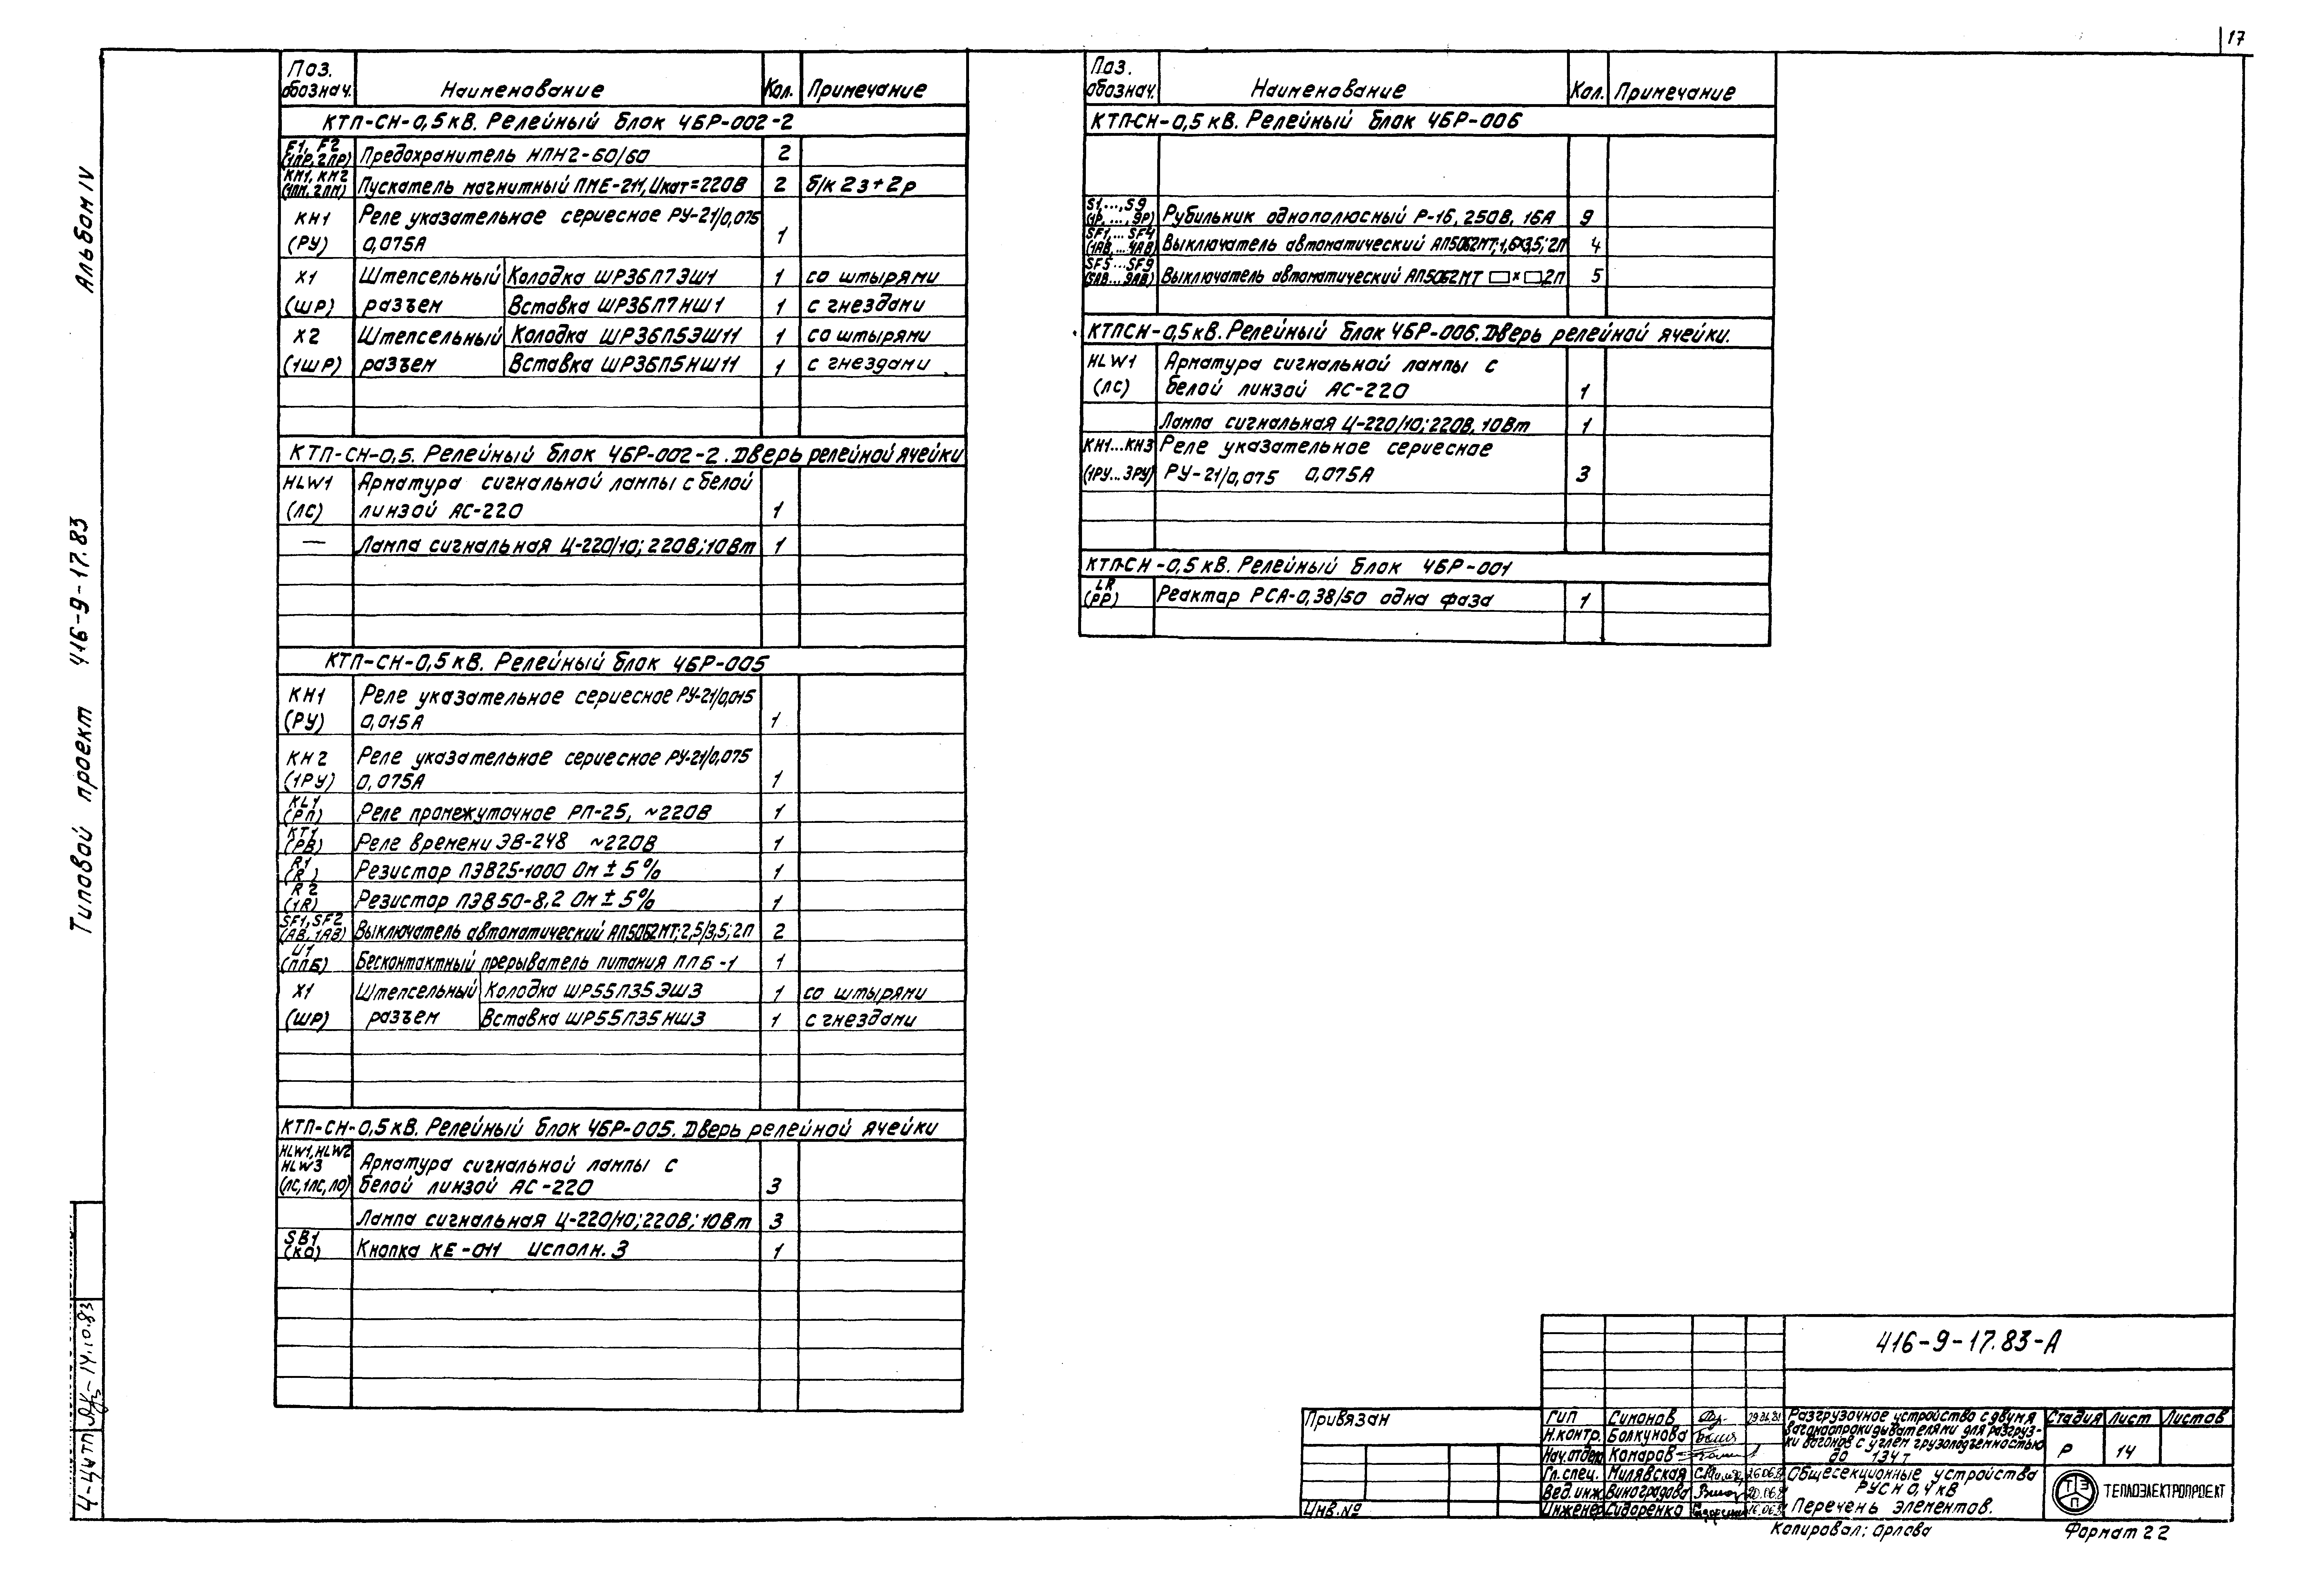 17
Альбом IV
Типовой проект 416-9-17.83
Поз. обознач. Наименование Кол. Примечание
КТП-СН-0,5кВ. Релейный блок ЧБР-002-2
F1, F2 (1ПР, 2ПР) Предохранитель НПН2-60/60 2
КМ1, КМ2 (1ПМ, 2ПМ) Пускатель магнитный ПМЕ-211, Uкат=220В 2 б/к 2з+2р
КН1 Реле указательное сериесное РУ-21/0,075
(РУ) 0,075А 1
X1 Штепсельный Колодка ШР36П7ЭШ1 1 со штырями
(ШР) разъем Вставка ШР36П7НШ1 1 с гнездами
X2 Штепсельный Колодка ШР36П5ЭШ11 1 со штырями
(1ШР) разъем Вставка ШР36П5НШ11 1 с гнездами
КТП-СН-0,5. Релейный блок ЧБР-002-2. Дверь релейной ячейки
HLW1 Арматура сигнальной лампы с белой
(ЛС) линзой АС-220 1
— Лампа сигнальная Ц-220/10; 220В; 10Вт 1
КТП-СН-0,5кВ. Релейный блок ЧБР-005
КН1 Реле указательное сериесное РУ-21/0,015
(РУ) 0,015А 1
КН2 Реле указательное сериесное РУ-21/0,075
(1РУ) 0,075А 1
KL1 (РП) Реле промежуточное РП-25, ~220В 1
КТ1 (РВ) Реле времени ЭВ-248 ~220В 1
R1 (R) Резистор ПЭВ25-1000 Ом ± 5% 1
R2 (1R) Резистор ПЭВ50-8,2 Ом ± 5% 1
SF1, SF2 (АВ, 1АВ) Выключатель автоматический АП50Б2МТ; 2,5/3,5; 2П 2
U1 (ППБ) Бесконтактный прерыватель питания ППБ-1 1
X1 Штепсельный Колодка ШР55П35ЭШ3 1 со штырями
(ШР) разъем Вставка ШР55П35НШ3 1 с гнездами
КТП-СН-0,5кВ. Релейный блок ЧБР-005. Дверь релейной ячейки
HLW1, HLW2
HLW3 Арматура сигнальной лампы с
(ЛС, 1ЛС, ЛО) белой линзой АС-220 3
Лампа сигнальная Ц-220/10; 220В; 10Вт 3
SB1 (КО) Кнопка КЕ-011 исполн. 3 1
Поз. обознач. Наименование Кол. Примечание
КТП-СН-0,5кВ. Релейный блок ЧБР-006
S1,...,S9 (1Р,...,9Р) Рубильник однополюсный Р-16, 250В, 16А 9
SF1,...SF4 (1АВ,...4АВ) Выключатель автоматический АП50Б2МТ; 1,6×3,5; 2П 4
SF5...SF9 (5АВ...9АВ) Выключатель автоматический АП50Б2МТ □×□, 2П 5
КТПСН-0,5кВ. Релейный блок ЧБР-006. Дверь релейной ячейки.
HLW1 Арматура сигнальной лампы с
(ЛС) белой линзой АС-220 1
Лампа сигнальная Ц-220/10; 220В, 10Вт 1
КН1...КН3 Реле указательное сериесное
(1РУ...3РУ) РУ-21/0,075 0,075А 3
КТП-СН-0,5кВ. Релейный блок ЧБР-001
LR (РР) Реактор РСА-0,38/50 одна фаза 1
416-9-17.83-А
Привязан
Инв.№
ГИП Симонов
Н.контр. Болкунова
Нач.отдел Комаров
Гл.спец. Милявская
Вед.инж. Виноградова
Инженер Сидоренко
Разгрузочное устройство с двумя
вагоноопрокидывателями для разгруз-
ки вагонов с углем грузоподъемностью
до 134т
Стадия Лист Листов
Р 14
Общесекционные устройства
РУСН 0,4кВ
Перечень элементов.
ТЭП
ТЕПЛОЭЛЕКТРОПРОЕКТ
Копировал: Орлова
Формат 22
14.10.83